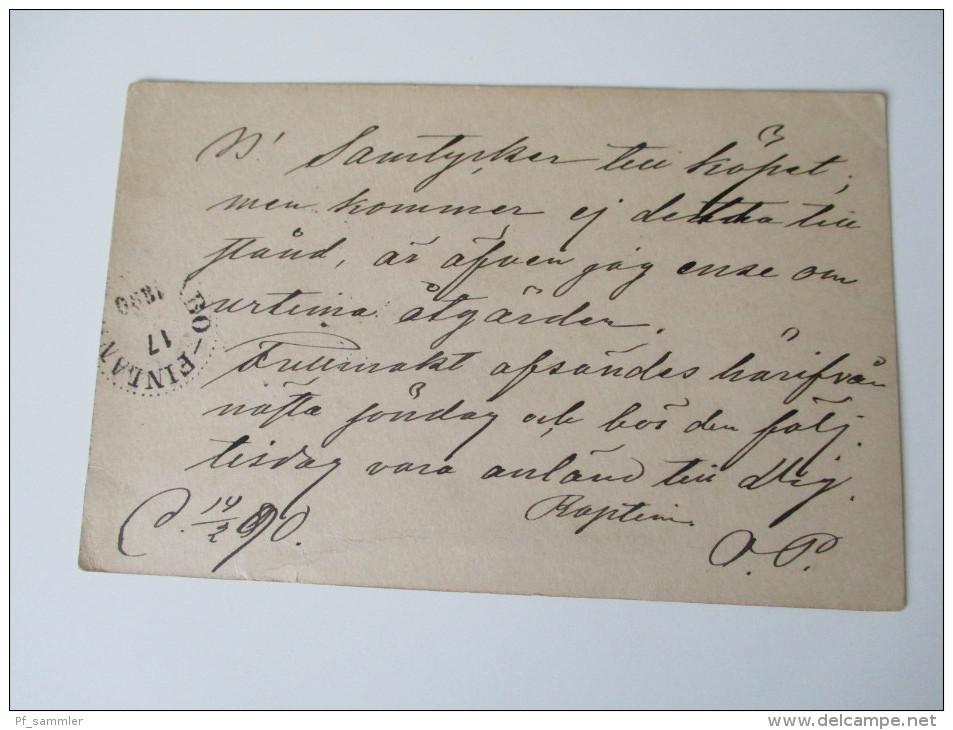 Samtycker till köpet,
men kommer ej detta till
stånd, är äfven jag ense om
åtgärden.
Fullmakt afsändes härifrån
nästa söndag och bör den följ.
tisdag vara anländ till Dig.
Raptim.
14/2 90.
O. P.
BO-FINLAN
17
1890
Pf_sammler
www.delcampe.net